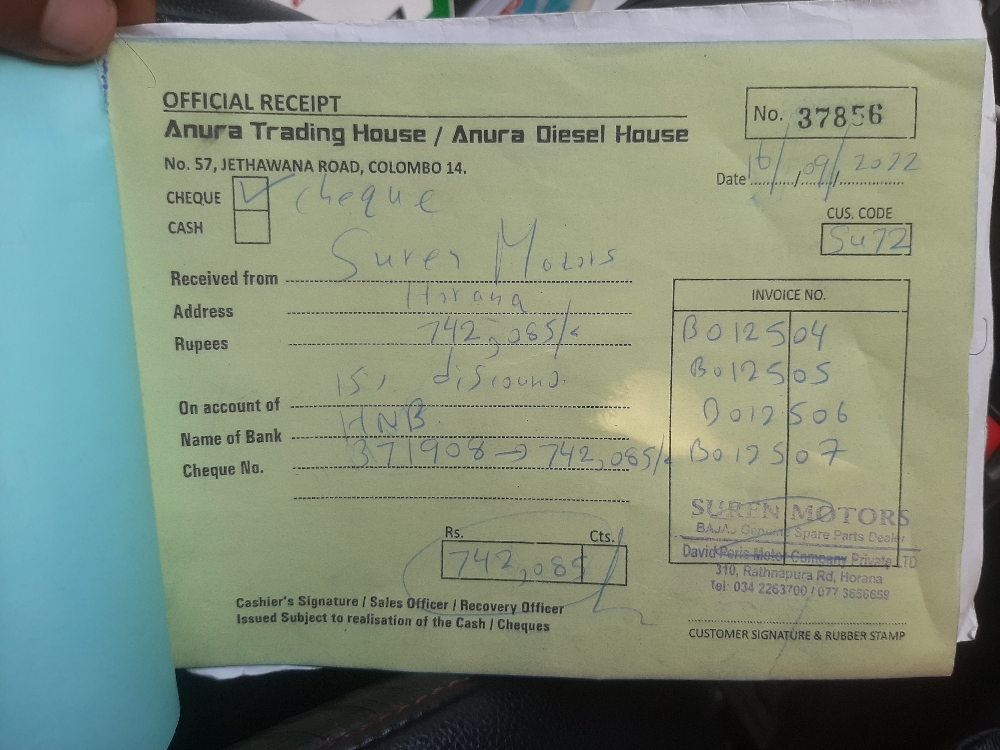 OFFICIAL RECEIPT
No. 37856
Anura Trading House / Anura Diesel House
No. 57, JETHAWANA ROAD, COLOMBO 14.
Date 16/09/2022
CHEQUE ✓ cheque
CASH
CUS. CODE
SU72
Received from Suren Motors
Address Horana
Rupees 742,085/-
15% discount.
On account of
Name of Bank HNB
Cheque No. 371908 → 742,085/-
INVOICE NO.
B012504
B012505
B012506
B012507
Rs. Cts.
742,085
SUREN MOTORS
BAJAJ Genuine Spare Parts Dealer
David Peris Motor Company Private LTD
310, Rathnapura Rd, Horana
Tel: 034 2263700 / 077 3656659
Cashier's Signature / Sales Officer / Recovery Officer
Issued Subject to realisation of the Cash / Cheques
CUSTOMER SIGNATURE & RUBBER STAMP